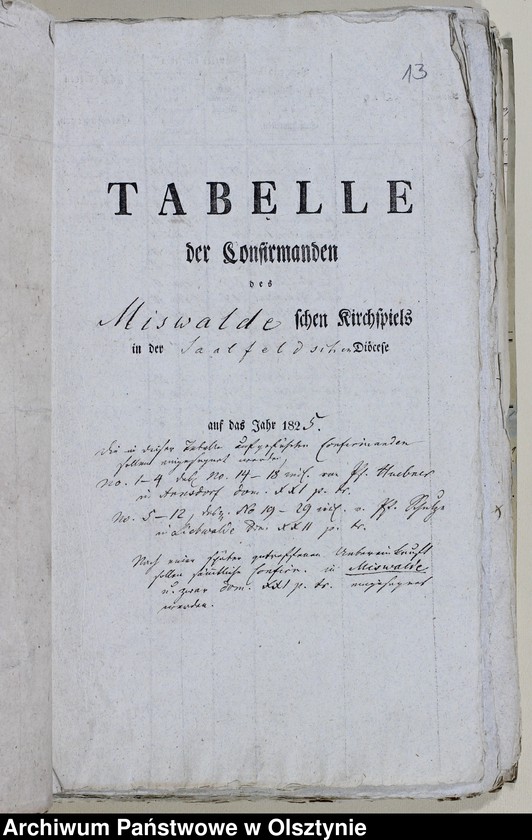 13
TABELLE
der Confirmanden
des
Miswalde schen Kirchspiels
in der Saalfeldschen Diöcese
auf das Jahr 1825.
Die in dieser Tabelle aufgeführten Confirmanden
sollen eingesegnet werden,
No. 1–4 desgl. No. 14–18 incl. von Pf. Huebner
in Arnsdorf Dom. XXI p. tr.
No. 5–12, desgl. No 19–29 incl. v. Pf. Schulze
in Liebwalde Dom. XXII p. tr.
Nach einer später getroffenen Uebereinkunft
sollen sämmtliche Confirm. in Miswalde
u. zwar Dom. XXI p. tr. eingesegnet
werden.
Archiwum Państwowe w Olsztynie